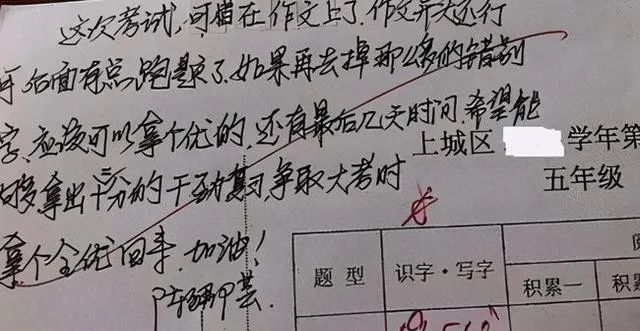 这次考试,可惜在作文上了.作文开头还行
后面有点跑题了.如果再去掉那么多的错别
字,应该可以拿个优的.还有最后几天时间.希望能
够拿出十三分的干劲复习,争取大考时
拿个全优回来.加油!
上城区 学年第
五年级
题 型
识字·写字
积累一
积累